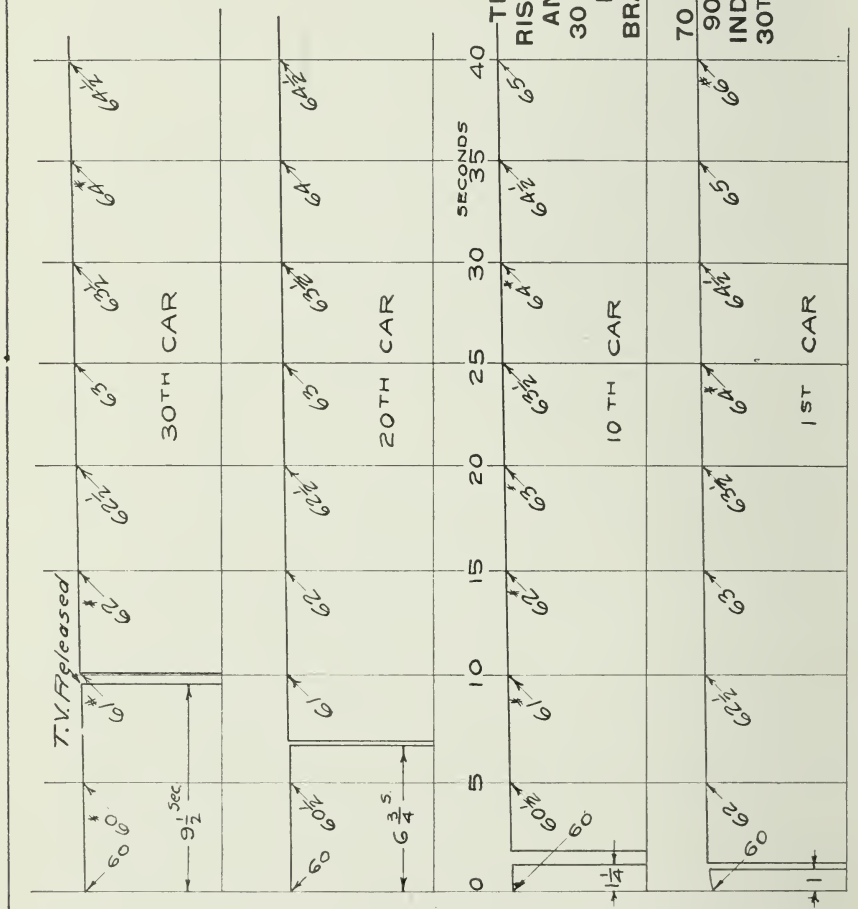 T.V. Released
60 60* 61* 62* 62½ 63 63½ 64* 64½
9½ Sec.
30TH CAR
60 60½ 61 62 62½ 63 63½ 64 64½
6¾ S.
20TH CAR
SECONDS
0 5 10 15 20 25 30 35 40
60 60½ 61* 62* 63* 63½ 64* 64½ 65
1¼
10TH CAR
60 62 62½ 63 63½ 64* 64½ 65 66*
1
1ST CAR
RIS
30
BRA
70
90
IND
30T